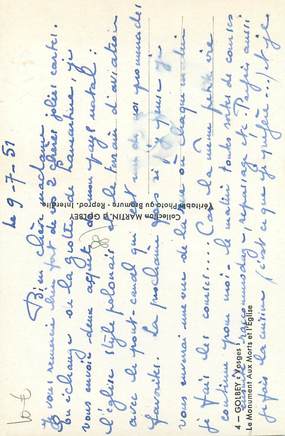 le 9-7-51
Bien chère madame
Je vous remercie bien fort de vos 2 chères jolies cartes.
En échange de la grotte de Lamartine, je
vous envoie deux aspects de mon pays natal:
l'église style polonais et le terrain d'aviation
avec le pont-canal qui est une de nos promenades
favorites. La prochaine fois si je puis j'y
vous enverrai une vue de la rue où chaque matin
je fais les courses.... C'est la même petite vie
quotidienne pour moi - le matin toutes sortes de courses
raccommodage, repassage etc. Parfois aussi
je fais la cuisine (c'est ce que je préfère...) et je
4 - GOLBEY (Vosges)
Le Monument Aux Morts et l'Eglise
Collection MARTIN, GOLBEY
Véritable Photo au Bromure - Reprod. Interdite